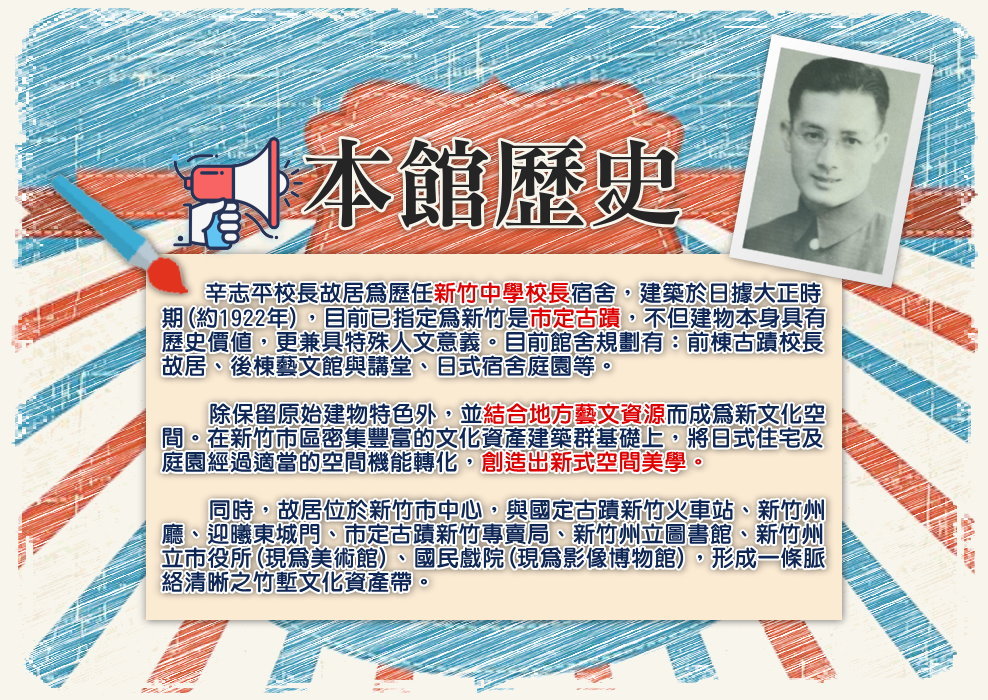 本館歷史
辛志平校長故居為歷任新竹中學校長宿舍，建築於日據大正時
期(約1922年)，目前已指定為新竹是市定古蹟，不但建物本身具有
歷史價值，更兼具特殊人文意義。目前館舍規劃有：前棟古蹟校長
故居、後棟藝文館與講堂、日式宿舍庭園等。
除保留原始建物特色外，並結合地方藝文資源而成為新文化空
間。在新竹市區密集豐富的文化資產建築群基礎上，將日式住宅及
庭園經過適當的空間機能轉化，創造出新式空間美學。
同時，故居位於新竹市中心，與國定古蹟新竹火車站、新竹州
廳、迎曦東城門、市定古蹟新竹專賣局、新竹州立圖書館、新竹州
立市役所(現為美術館)、國民戲院(現為影像博物館)，形成一條脈
絡清晰之竹塹文化資產帶。